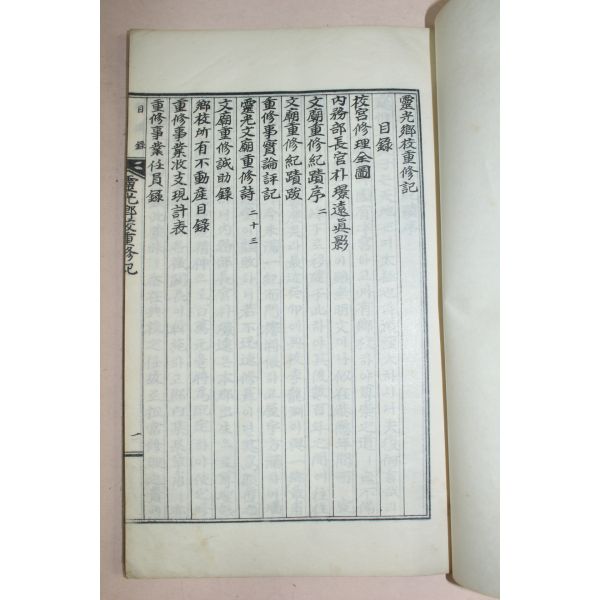 靈光鄉校重修記
目錄
校宮修理全圖
內務部長官朴璟遠眞影
文廟重修紀蹟序 二
文廟重修紀蹟跋
重修事實論評記
靈光文廟重修詩 二十三
文廟重修誠助錄
鄉校所有不動産目錄
重修事業收支現計表
重修事業任員錄
目錄
靈光鄉校重修記
一